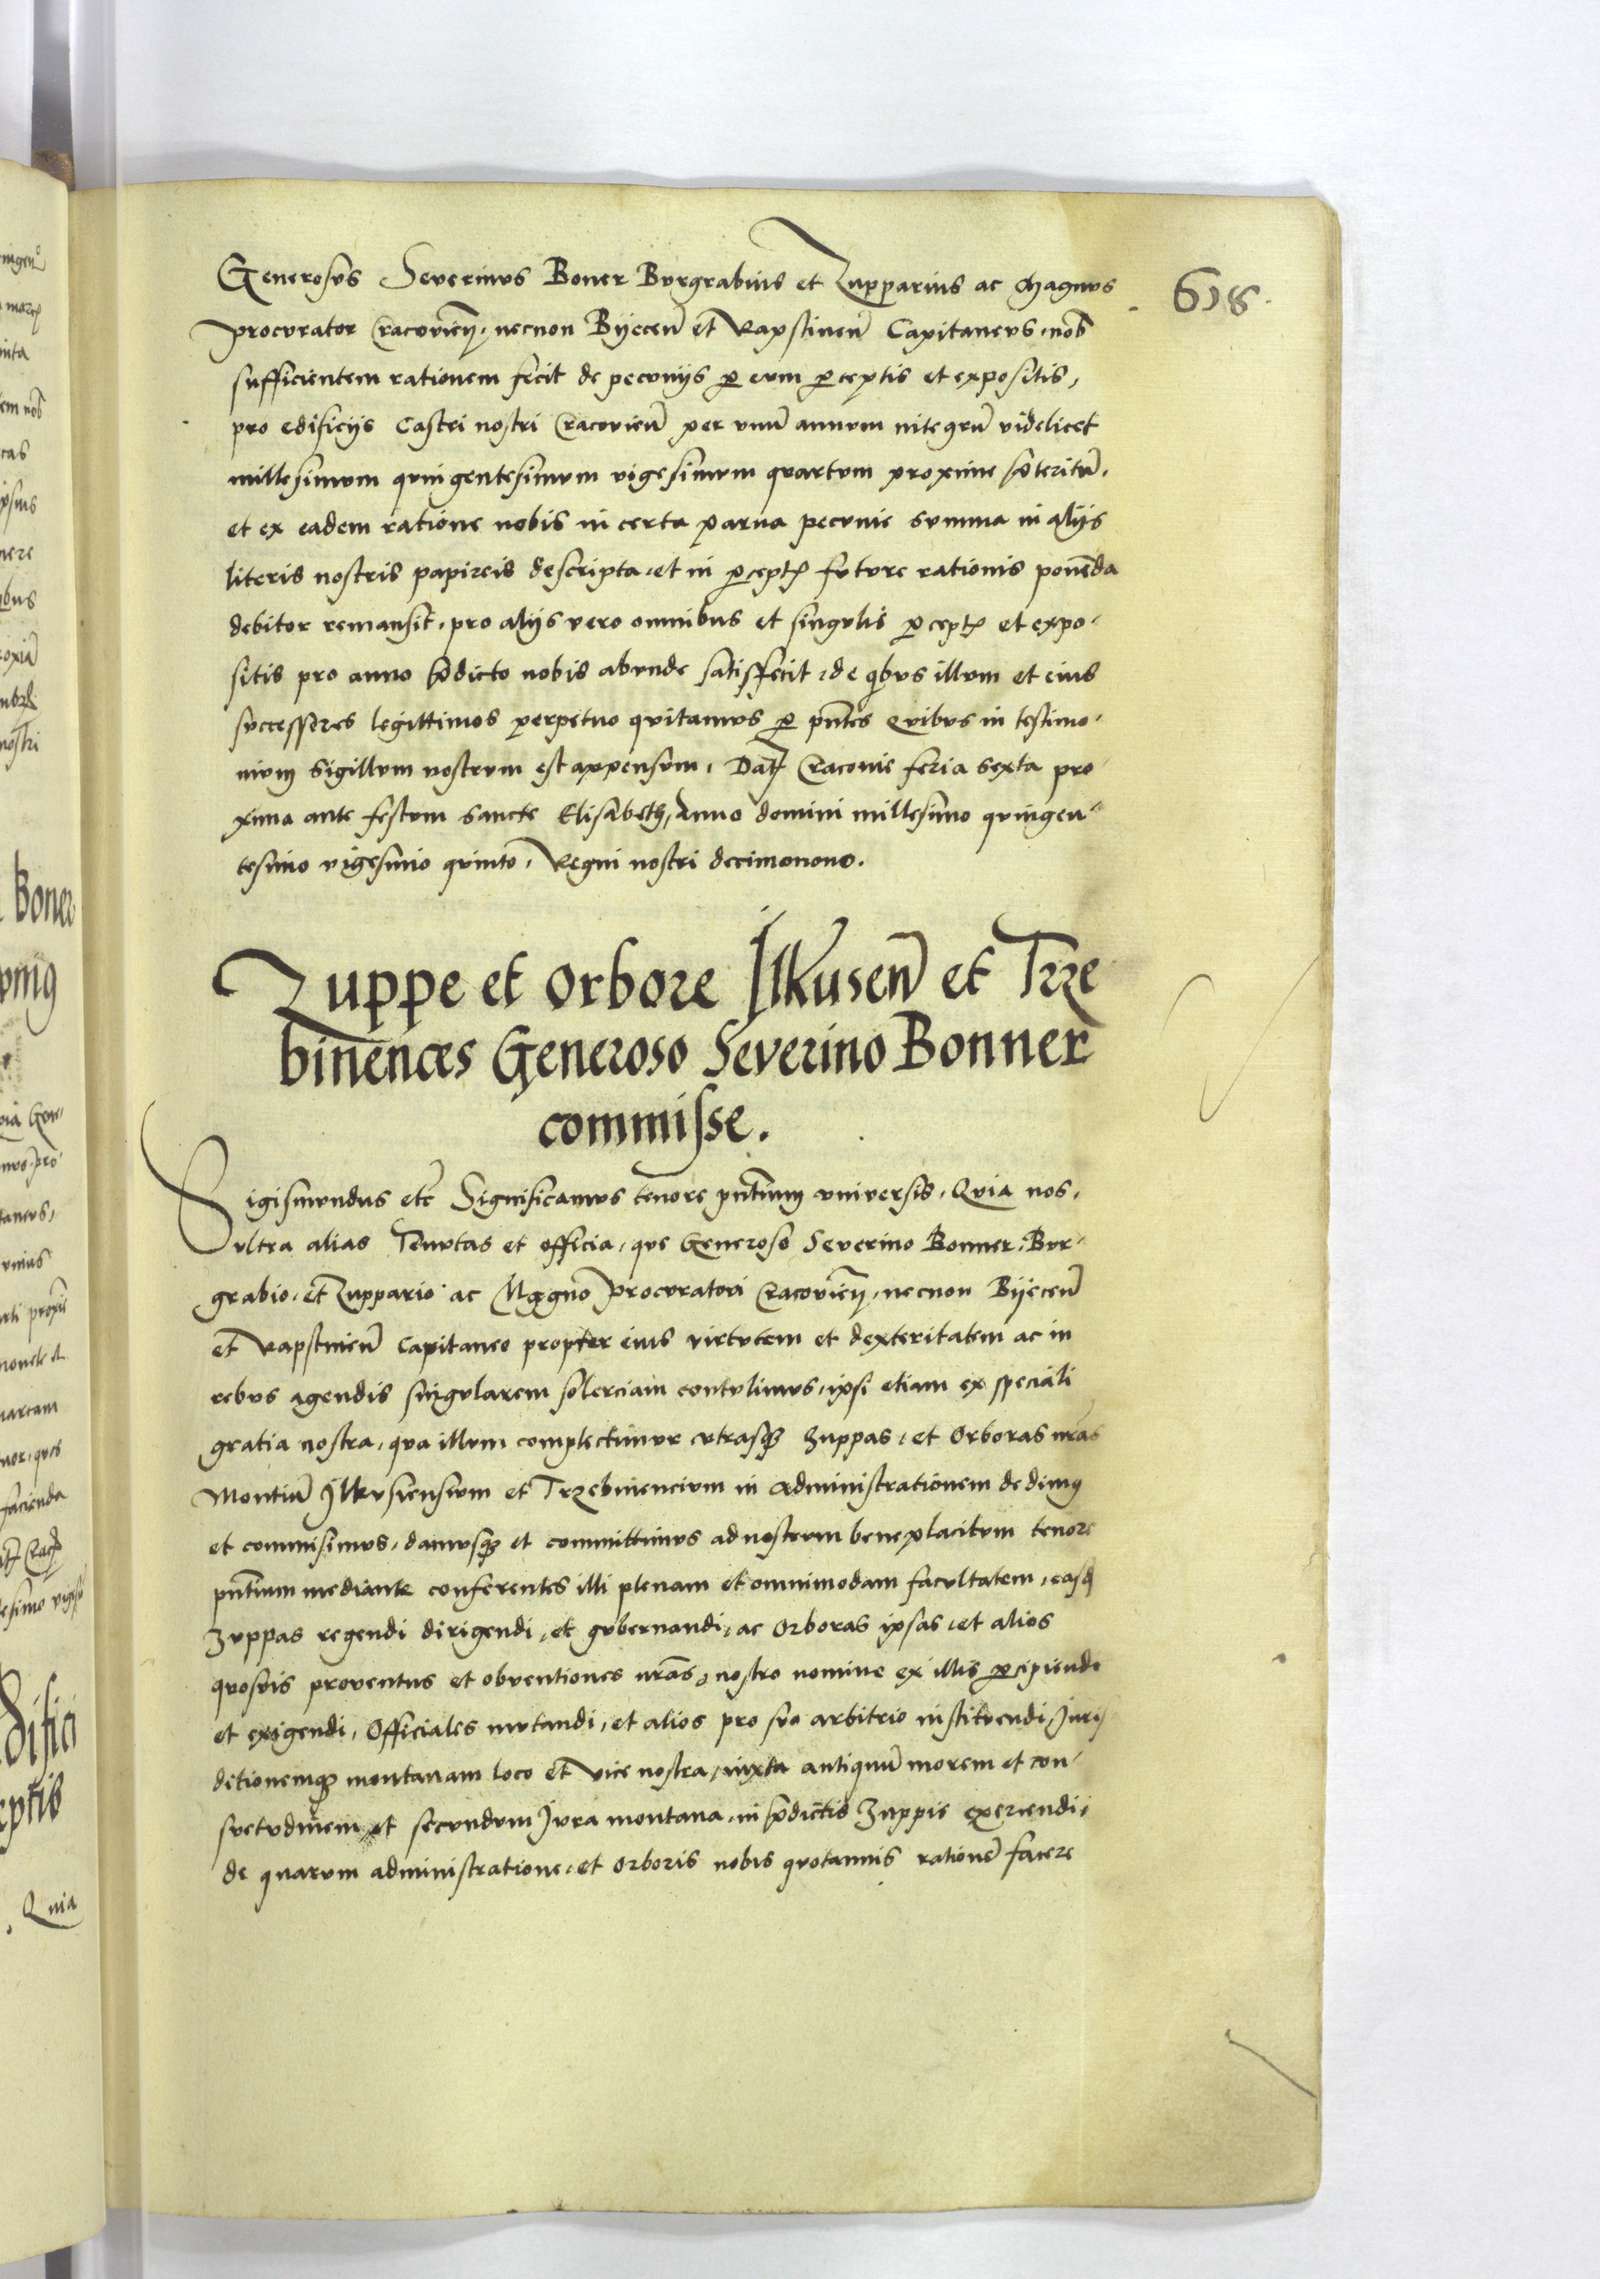 618.
Generosus Severinus Boner Burgrabius et Zupparius ac Magnus
procurator Cracovieñ, necnon Byeceñ et Rapstineñ Capitaneus, nob̃
sufficientem rationem fecit de pecunijs ꝑ eum ꝑceptis et expositis,
pro edificijs Castri nostri Cracovieñ per unũ annum integrũ videlicet
millesimum quingentesimum vigesimum quartum proxime p̃teritũ,
et ex eadem ratione nobis in certa parva pecunie summa in alijs
literis nostris papireis descripta, et in ꝑceptꝭ future rationis ponẽda
debitor remansit, pro alijs vero omnibus et singulis ꝑceptꝭ et expo-
sitis pro anno p̃dicto nobis abunde satisfecit, de q̃bus illum et eius
successores legittimos perpetuo quitamus ꝑ pñtes Quibus in testimo-
nium Sigillum nostrum est appensum, Datꝭ Cracovie feria sexta pro-
xima ante festum sancte Elisabeth, Anno domini millesimo quingen-
tesimo vigesimo quinto, Regni nostri decimonono.
Zuppe et Orbore Ilkuseñ et Trze
binences Generoso Severino Bonner
commisse.
Sigismundus etc̃ Significamus tenore pñtium universis, Quia nos,
ultra alias Tenutas et officia, que Generoso Severino Bonner, Bur-
grabio, et Zuppario ac Magno procuratori Cracovieñ, necnon Byeceñ
et Rapstineñ Capitaneo propter eius virtutem et dexteritatem ac in
rebus agendis singularem solerciam contulimus, ipsi etiam ex speciali
gratia nostra, qua illum complectimur utrasqꝫ Zuppas, et Orboras nr̃as
Montiũ Ilkusiensium et Trzebinencium in administrationem dedimus
et commisimus, damusqꝫ et committimus ad nostrum beneplacitum tenore
pñtium mediante conferentes illi plenam et omnimodam facultatem, easqꝫ
Zuppas regendi dirigendi, et gubernandi, ac Orboras ipsas, et alios
quosvis proventus et obventiones nr̃as, nostro nomine ex illis ꝑcipiendi
et exigendi, Officiales mutandi, et alios pro suo arbitrio instituendi, Juris
ditionemqꝫ montanam loco et vice nostra, iuxta antiquũ morem et con-
suetudinem et secundum Jura montana, in p̃dictis Zuppis exercendi,
de quarum administratione, et Orboris nobis quotannis rationẽ facere